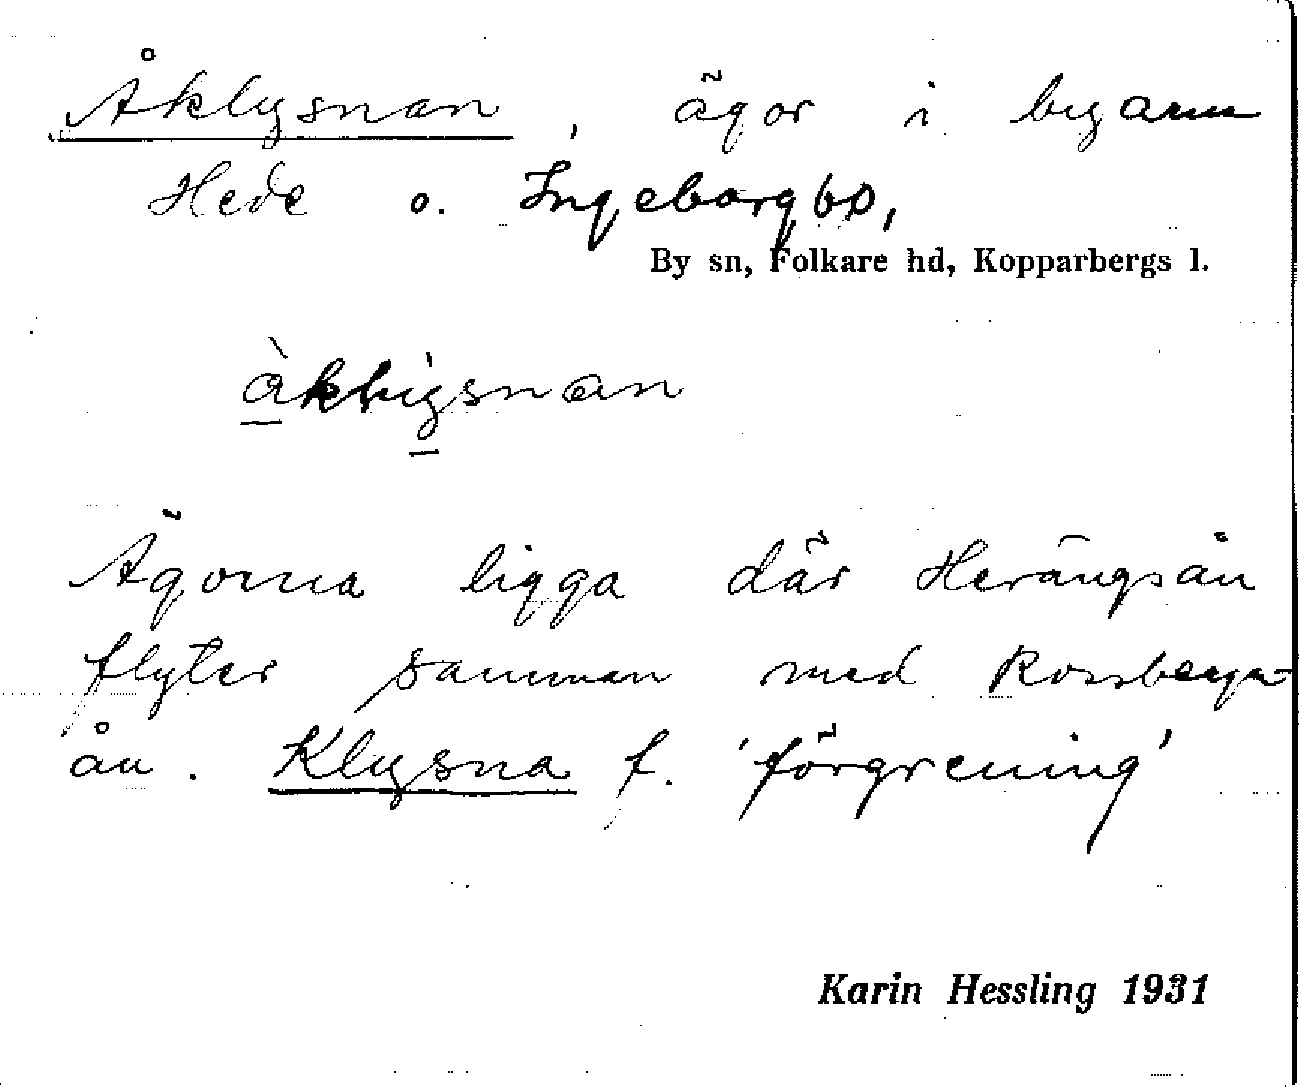 Åklysnan, ägor i byarna
Hede o. Ingeborgbo,
By sn, Folkare hd, Kopparbergs l.
Ägorna ligga där Herängsån
flyter samman med Rossberga-
ån. Klysna f. 'förgrening'
Karin Hessling 1931